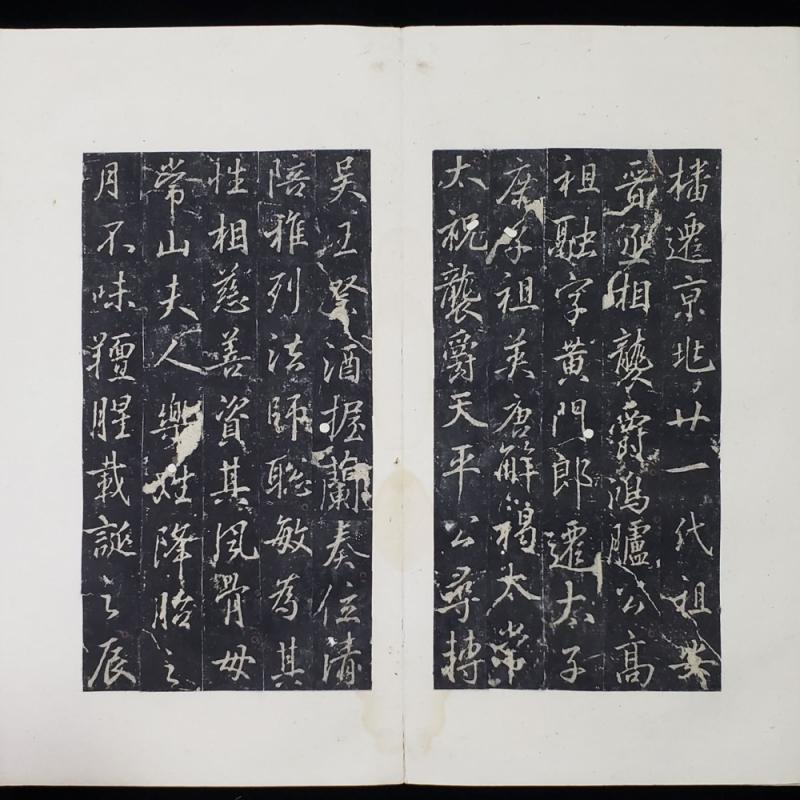 播遷京兆廿一代祖安
晉丞相襲爵鴻臚公高
祖融字黃門郎遷太子
庶子祖英唐解褐太常
太祝襲爵天平公尋轉
吳王祭酒握蘭奏位清
陪雅列法師聡敏為其
性相慈善資其風骨母
常山夫人樂姓降胎之
月不味羶腥載誕之辰